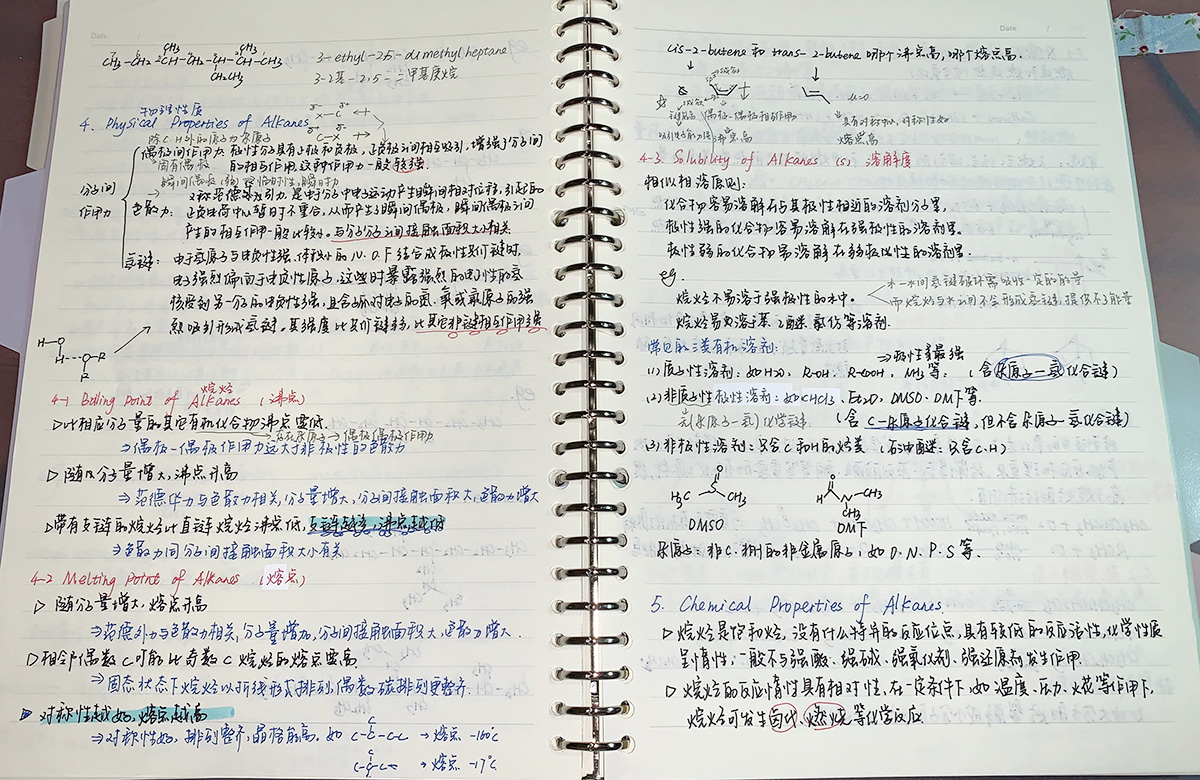 Date: /
CH₃ CH₃
CH₃-CH₂-CH-CH₂-CH-CH-CH₃
CH₂CH₃
3-ethyl-2,5-dimethylheptane
3-乙基-2,5-二甲基庚烷
物理性质
4. Physical Properties of Alkanes
除C、H外的原子为杂原子
分子间作用力
偶极间作用力: 极性分子具有正极和负极, 正负极间相互吸引, 增强了分子间
的相互作用, 这种作用力一般较强.
固有偶极
色散力:
又称范德华引力, 是由分子中电子运动产生瞬间相对位移, 引起的
正负电荷中心暂时不重合, 从而产生了瞬间偶极, 瞬间偶极之间
产生的相互作用一般比较小. 与分子分子间接触面积大小相关
氢键: 由于氢原子与电负性强、体积小的 N. O. F 结合成极性共价键时,
电子强烈偏向于电负性原子, 这些时暴露强烈的电正性的氢
核受到另一分子的电负性强, 且含孤对电子的氮、氧或氟原子的强
烈吸引形成氢键, 其强度比共价键弱, 比其它非键相互作用强
H-O
H----O-R
R
烷烃
4-1 Boiling Point of Alkanes (沸点)
▷ 比相同分子量的其它有机化合物沸点要低
→ 存在杂原子 → 偶极偶极作用力
⇒ 偶极-偶极作用力远大于非极性的色散力
▷ 随几分子量增大, 沸点升高
⇒ 范德华力与色散力相关, 分子量增大, 分子间接触面积大, 色散力增大
▷ 带有支链的烷烃比直链烷烃沸点低, 支链越多, 沸点越低
⇒ 色散力同分子间接触面积大小有关
4-2 Melting Point of Alkanes (熔点)
▷ 随分子量增大, 熔点升高
⇒ 范德华力与色散力相关, 分子量增加, 分子间接触面积大, 色散力增大.
▷ 相邻偶数C可能比奇数C烷烃的熔点要高
⇒ 固态状态下烷烃以折线形不排列, 偶数碳排列更整齐.
▷ 对称性越好, 熔点越高
⇒ 对称性好, 排列整齐, 晶格能高. 如 C-C-C-C → 熔点 -160°C
→ 熔点 -17°C
Date: /
cis-2-butene 和 trans-2-butene 哪个沸点高, 哪个熔点高.
μ=0
偶极-偶极相互作用
沸点高
具有对称中心, 对称性好
熔点高
4-3 Solubility of Alkanes (s) 溶解度
相似相溶原则:
化合物容易溶解在与其极性相近的溶剂分里,
极性强的化合物容易溶解在强极性的溶剂里.
极性弱的化合物易溶解在弱极性的溶剂里.
eg.
烷烃不易溶于强极性的水中.
水-水间氢键破坏需吸收一定的能量
而烷烃与水之间不会形成氢键, 提供不了能量
烷烃易溶于苯、乙醚、氯仿等溶剂.
常见的三类有机溶剂:
⇒ 极性是最强
(1) 质子性溶剂: 如H₂O, R-OH, R-COOH, NH₃等. (含杂原子-氢化合键)
(2) 非质子性极性溶剂: 如CHCl₃、Et₂O、DMSO、DMF等.
无(杂原子-氢)化学键 (含 C-杂原子化合键, 但不含杂原子-氢化合键)
(3) 非极性溶剂: 只含C和H的烃类 (石油醚: 只含C、H)
O
H₃C CH₃
DMSO
O
H N CH₃
CH₃
DMF
杂原子: 非C. 和H的非金属原子, 如 O. N. P. S 等.
5. Chemical Properties of Alkanes
▷ 烷烃是饱和烃, 没有什么特异的反应位点, 具有较低的反应活性, 化学性质
呈惰性, 一般不与强酸、强碱、强氧化剂、强还原剂发生作用.
▷ 烷烃的反应惰性具有相对性, 在一定条件下, 如温度、压力、火花等作用下,
烷烃可发生卤代、燃烧等化学反应